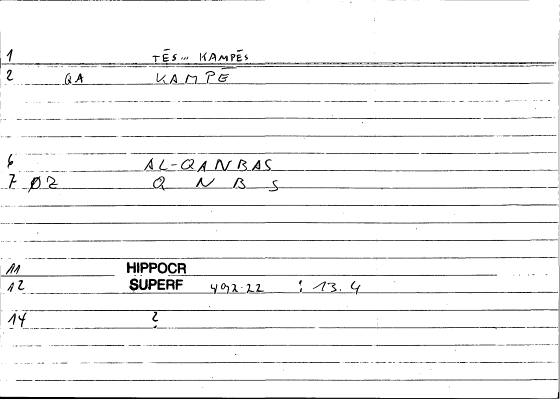 1 TĒS... KAMPĒS
2 QA KAMPĒ
6 AL-QANBAS
7 Ø2 Q N B S
11 HIPPOCR
12 SUPERF 492.22 : 13.4
14 ?